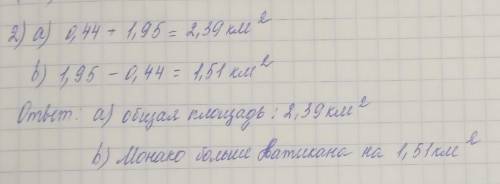 2) а) 0,44 + 1,95 = 2,39 км²
b) 1,95 - 0,44 = 1,51 км²
Ответ: а) общая площадь: 2,39 км²
b) Монако больше Ватикана на 1,51 км²